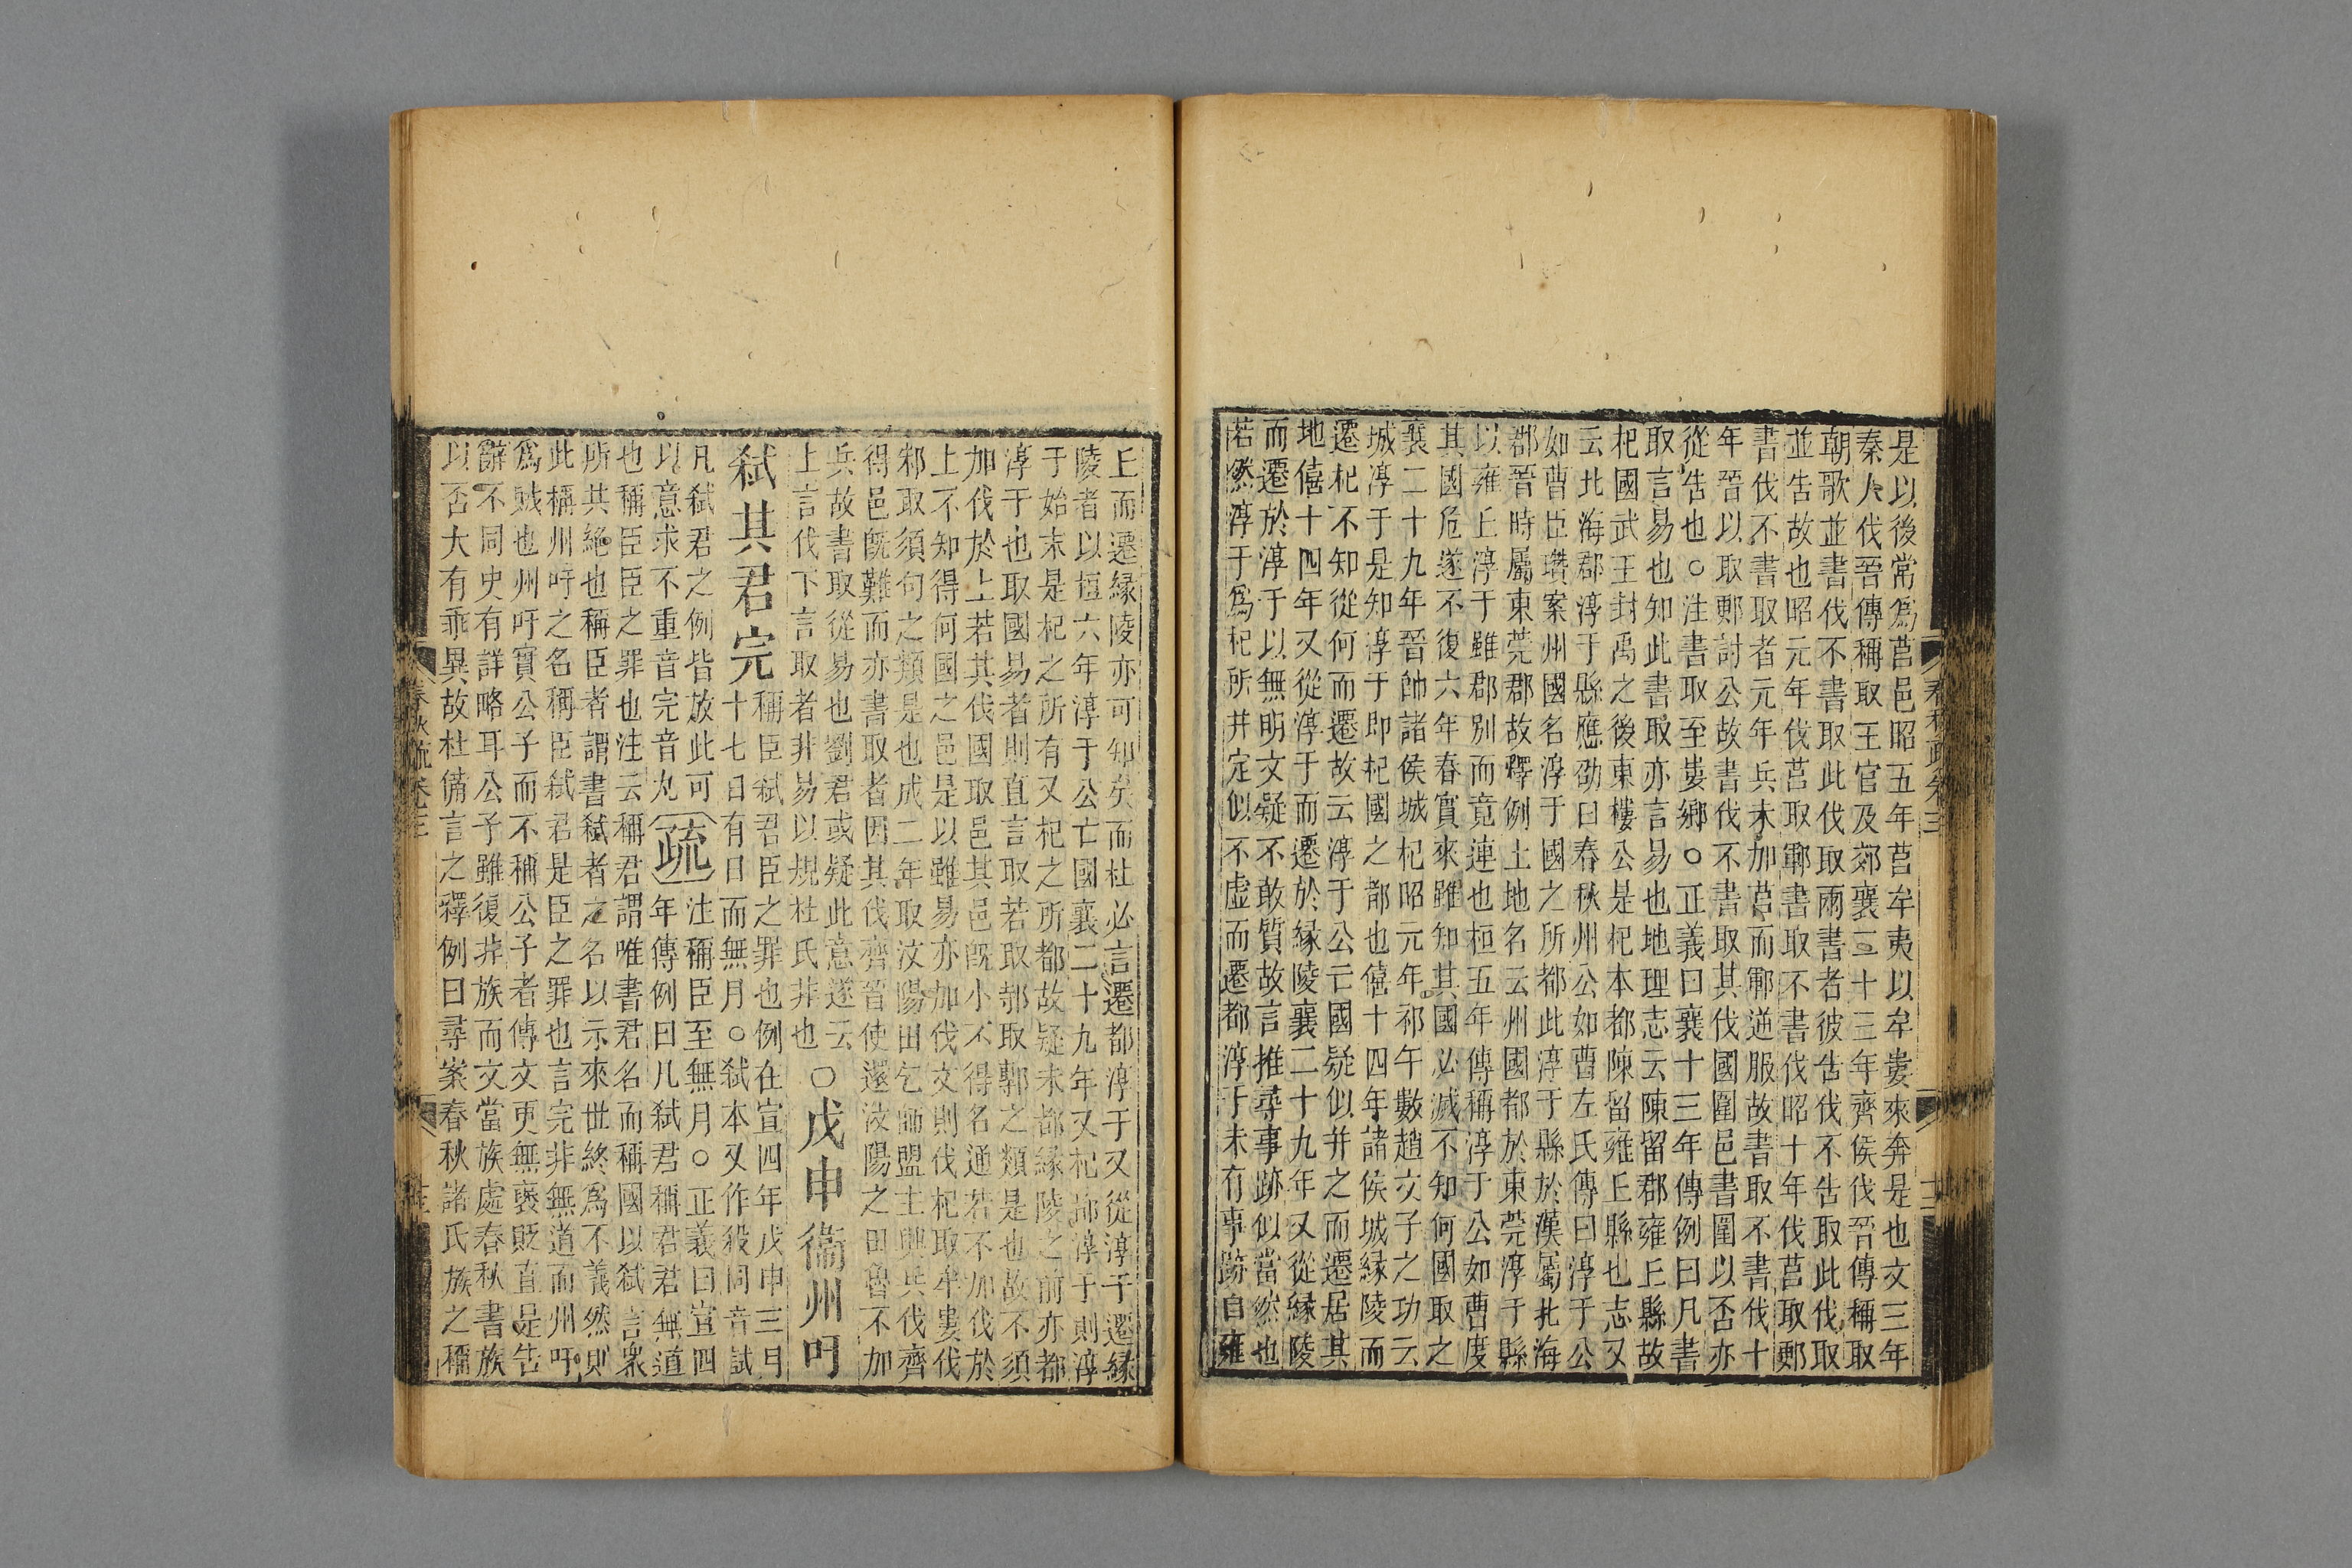 是以後常爲莒邑昭五年莒牟夷以牟婁來奔是也文三年
秦人伐晉傳稱取王官及郊襄二十三年齊侯伐晉傳稱取
朝歌並書伐不書取此伐取兩書者彼告伐不告取此伐取
並告故也昭元年伐莒取鄆書取不書伐昭十年伐莒取鄭
書伐不書取者元年兵未加莒而鄆逆服故書取不書伐十
年晉以取鄭討公故書伐不書取其伐國圍邑書圍以否亦
從告也○注書取至婁鄉○正義曰襄十三年傳例曰凡書
取言易也知此書取亦言易也地理志云陳留郡雍丘縣故
杞國武王封禹之後東樓公是杞本都陳留雍丘縣也志又
云北海郡淳于縣應劭曰春秋州公如曹左氏傳曰淳于公
如曹臣瓚案州國名淳于國之所都此淳于縣於漢屬北海
郡晉時屬東莞郡故釋例土地名云州國都於東莞淳于縣
以雍丘淳于雖郡別而竟連也桓五年傳稱淳于公如曹度
其國危遂不復六年春實來雖知其國必滅不知何國取之
襄二十九年晉帥諸侯城杞昭元年祁午數趙文子之功云
城淳于是知淳于即杞國之都也僖十四年諸侯城緣陵而
遷杞不知從何而遷故云淳于公亡國疑似并之而遷居其
地僖十四年又從淳于而遷於緣陵襄二十九年又從緣陵
而遷於淳于以無明文疑不敢質故言推尋事跡似當然也
若然淳于爲杞所并定似不虛而遷都淳于未有事跡自雍
丘而遷緣陵亦可知矣而杜必言遷都淳于又從淳于遷緣
陵者以桓六年淳于公亡國襄二十九年又杞都淳于則淳
于始末是杞之所有又杞之所都故疑未都緣陵之前亦都
淳于也取國易者則直言取若取邿取鄟之類是也故不須
加伐於上若其伐國取邑其邑既小不得名通若不加伐於
上不知得何國之邑是以雖易亦加伐文則伐杞取牟婁伐
邾取須句之類是也成二年取汶陽田乞師盟主興兵伐齊
得邑既難而亦書取者因其伐齊晉使還汶陽之田魯不加
兵故書取從易也劉君或疑此意遂云
上言伐下言取者非易以規杜氏非也 ○戊申衞州吁
弒其君完 稱臣弒君臣之罪也例在宣四年戊申三月
十七日有日而無月○弒本又作殺同音試
凡弒君之例皆放此可
以意求不重音完音丸 疏 注稱臣至無月○正義曰宣四
年傳例曰凡弒君稱君君無道
也稱臣臣之罪也注云稱君謂唯書君名而稱國以弒言衆
所共絕也稱臣者謂書弒者之名以示來世終爲不義然則
此稱州吁之名稱臣弒君是臣之罪也言完非無道而州吁
爲賊也州吁實公子而不稱公子者傳文更無褒貶直是告
辭不同史有詳略耳公子雖復非族而文當族處春秋書族
以否大有乖異故杜備言之釋例曰尋案春秋諸氏族之稱